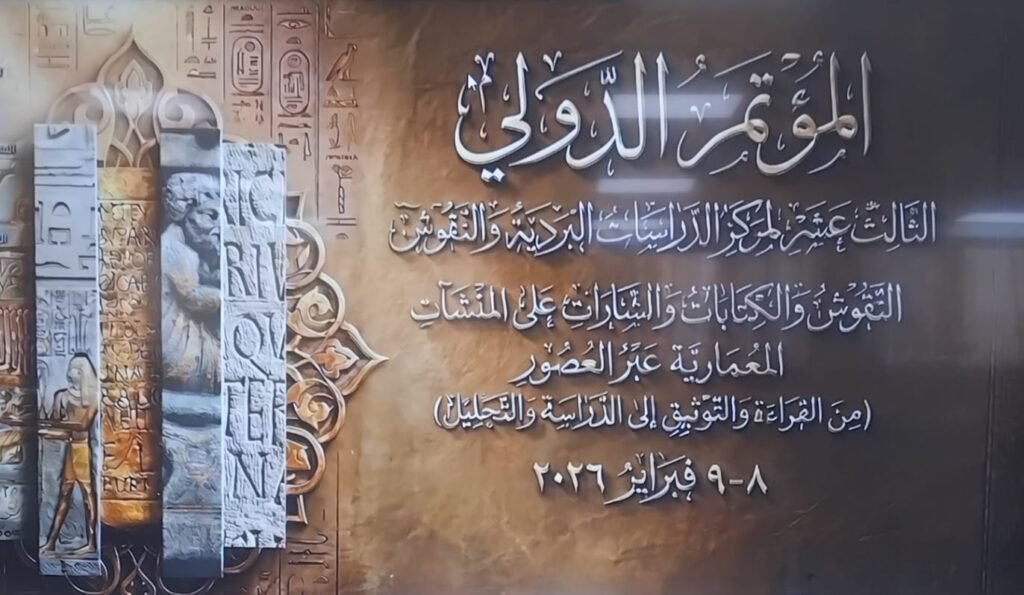 المُؤتمَرُ الدَّولي
الثَّالثَ عَشَرَ لمركز الدِّرَاسَاتِ البَرْدِيَّةِ وَالنُّقُوشِ
النُّقُوشُ وَالكِتَابَاتُ وَالشَّارَاتُ عَلَى المُنْشَآتِ
المِعْمَارِيَّة عَبْرَ العُصُورِ
(مِنَ القِرَاءَةِ وَالتَّوْثِيقِ إِلى الدِّرَاسَةِ وَالتَّحْلِيل)
٨-٩ فَبْرَايِرُ ٢٠٢٦
RIV
QV